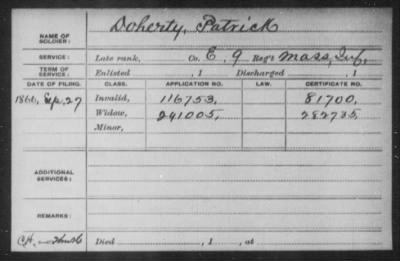 NAME OF SOLDIER: Doherty, Patrick
SERVICE: Late rank, Co. E, 9 Reg't Mass. Inf,
TERM OF SERVICE: Enlisted , 1 Discharged , 1
DATE OF FILING. CLASS. APPLICATION NO. LAW. CERTIFICATE NO.
1866, Sep. 27 Invalid, 116753, 81700,
Widow, 241005, 282735,
Minor,
ADDITIONAL SERVICES:
REMARKS:
C.H. Died , 1 , at